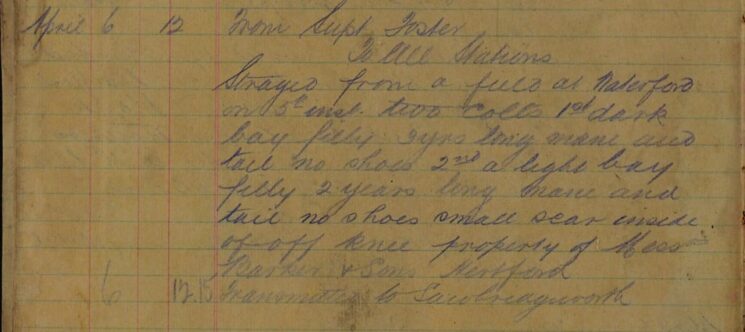 April 6 12 From Supt Foster
To All Stations
Strayed from a field at Waterford
on 5th inst. two colts 1st dark
bay filly 3yrs long mane and
tail no shoes 2nd a light bay
filly 2 years long mane and
tail no shoes small scar inside
of off knee property of Mess
& Sons Hertford
6 12.15 Transmitted to Sawbridgeworth